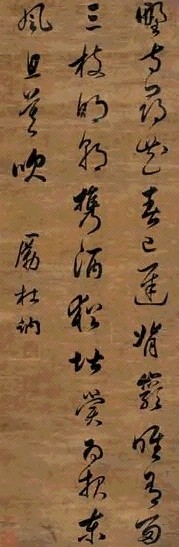 野寺尋花春已遲背巖唯有兩
三枝明朝攜酒猶堪賞為報東
風且莫吹 勵杜訥